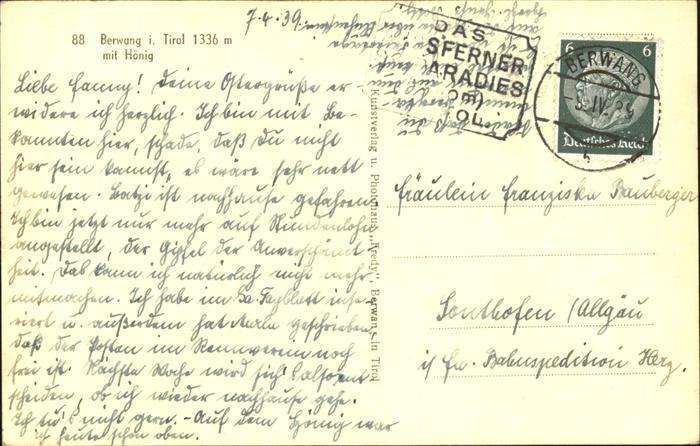 88 Berwang i. Tirol 1336 m
mit Hönig
7-4-39.
Liebe Fanny! Deine Ostergrüße er-
widere ich herzlich. Ich bin mit Be-
kannten hier, schade, daß du nicht
hier sein kannst, es wäre sehr nett
gewesen. Batzi ist nachhause gefahren.
Ich bin jetzt nur mehr auf Stundenlohn
angestellt, der Gipfel der Unverschämt
heit. Das kann ich natürlich nicht mehr
mitmachen. Ich habe im Tagblatt inse-
riert u. außerdem hat geschrieben,
daß der Posten im Rennverein noch
frei ist. Nächste Woche wird sich's also ent
scheiden, ob ich wieder nachhause gehe.
Ich tu's nicht gern. - Auf dem Hönig war
ich heute schon oben.
Kunstverlag u. Photohaus „Fredy“, Berwang in Tirol
DAS
SFERNER
ARADIES
OL
BERWANG
6 6
Deutsches Reich
Fräulein Franziska Bauberger
Sonthofen /Allgäu
i/ Fa. Bahnspedition Herz.